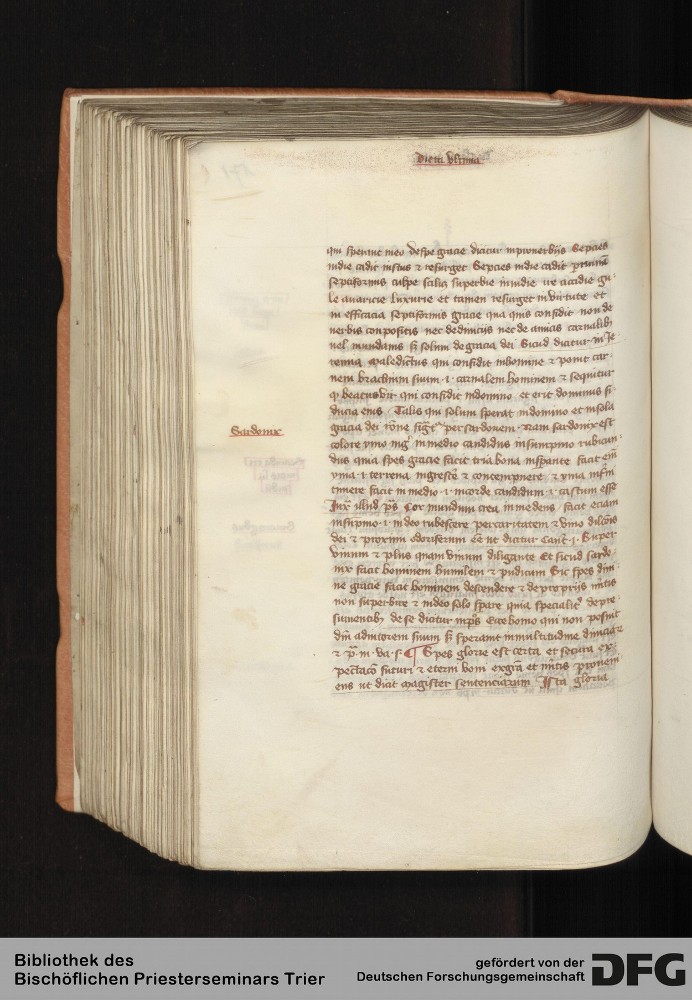 Dieta Ultima
qui sperant meo de spe gracie dicitur in proverbijs Sepcies
in die cadit iustus et resurget Sepcies in die cadit
septiformis culpe scilicet superbie invidie ire accidie gu
le avaricie luxurie et tamen resurget in virtute et
in efficacia septiformis gracie qua quis confidit non de
verbis conpositis nec de divicijs nec de amicis carnalibus
vel mundanis sed solum de gracia dei Sicud dicitur in Je
remia Maledictus qui confidit in homine et ponit car
nem brachium suum .i. carnalem hominem et sequitur
quod beatus vir qui confidit in domino et erit dominus fi
ducia eius Talis qui solum sperat in domino et in sola
gracia dei per sardonem Nam sardonix est
Sardonix
colore ymo nigra in medio candidus in supremo rubicun
dus quia spes gracie facit tria bona in sperante facit enim
yma .i. terrena nigrescere et contempnere et yma
timere facit in medio .i. in corde candidum .i. castum esse
Juxta illud ps Cor mundum crea in me deus facit eciam
in supremo .i. in deo rubescere per caritatem et
dei et proximi odoriferum esse ut dicitur Cant .i. Super
vinum et plus quam vinum diligante Et sicud sardo
nix facit hominem humilem et pudicum Sic spes divi
ne gracie facit hominem descendere et de proprijs meritis
non superbire et in deo solo sperare quia specialiter depre
sumentibus de se dicitur in ps Ecce homo qui non posuit
deum adiutorem suum sed speravit in multitudine diviciarum
et p. in va. s. ¶ Spes glorie est certa et secura ex
pectacio futuri et eterni boni ex gracia et meritis proveni
ens ut dicit Magister sentenciarum Ista gloria
Bibliothek des
Bischöflichen Priesterseminars Trier
gefördert von der
Deutschen Forschungsgemeinschaft
DFG